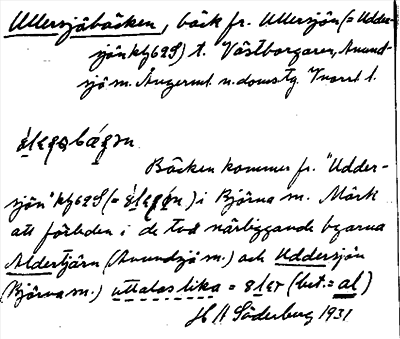 Ullersjöbäcken, bäck fr. Ullersjön (= Udder-
sjön kbl 62S) t. Västborgaren, Anund-
sjö m. Ångerml. n. domstg. Vnorrl. l.
Bäcken kommer fr. "Udder-
sjön" kbl 62S (= ) i Björna sn. Märk
att förleden i de två närliggande byarna
Aldertjärn (Anundsjö sn.) och Uddersjön
(Björna sn.) uttalas lika = (bet. = al)
H A Söderberg 1931